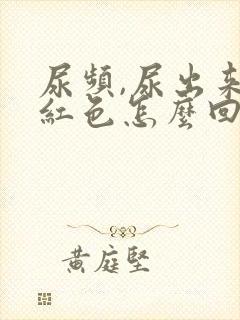 尿頻,尿出來
紅色怎麼回
黃庭堅